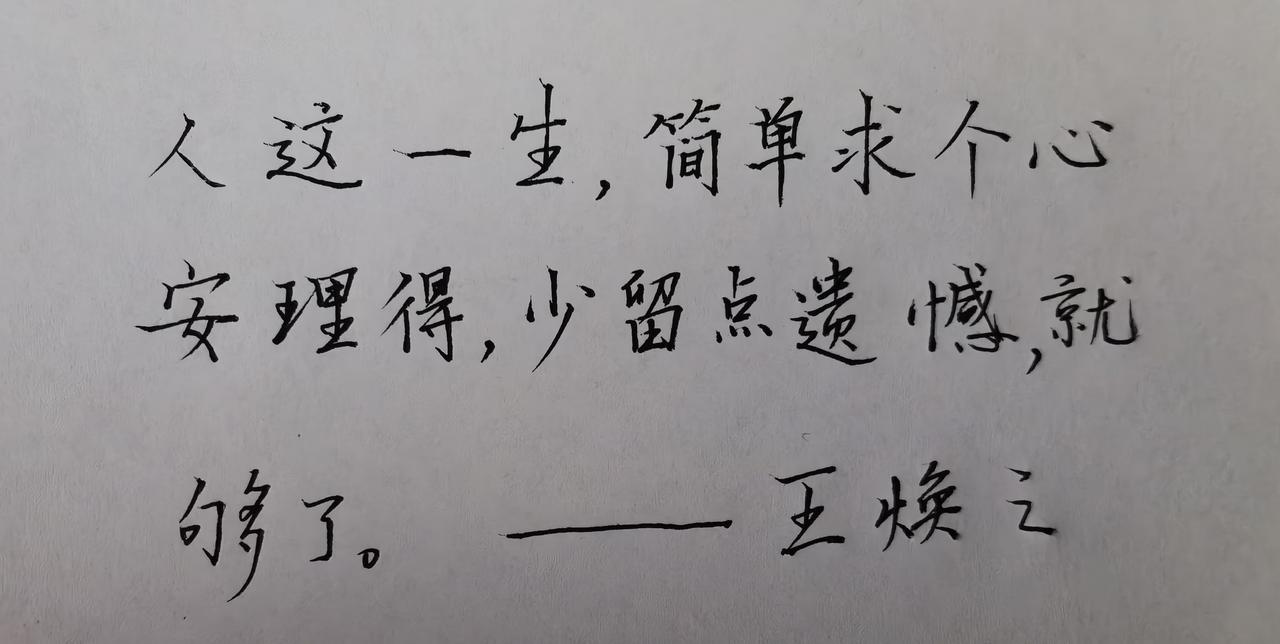 人这一生,简单求个心
安理得,少留点遗憾,就
够了。——王焕之